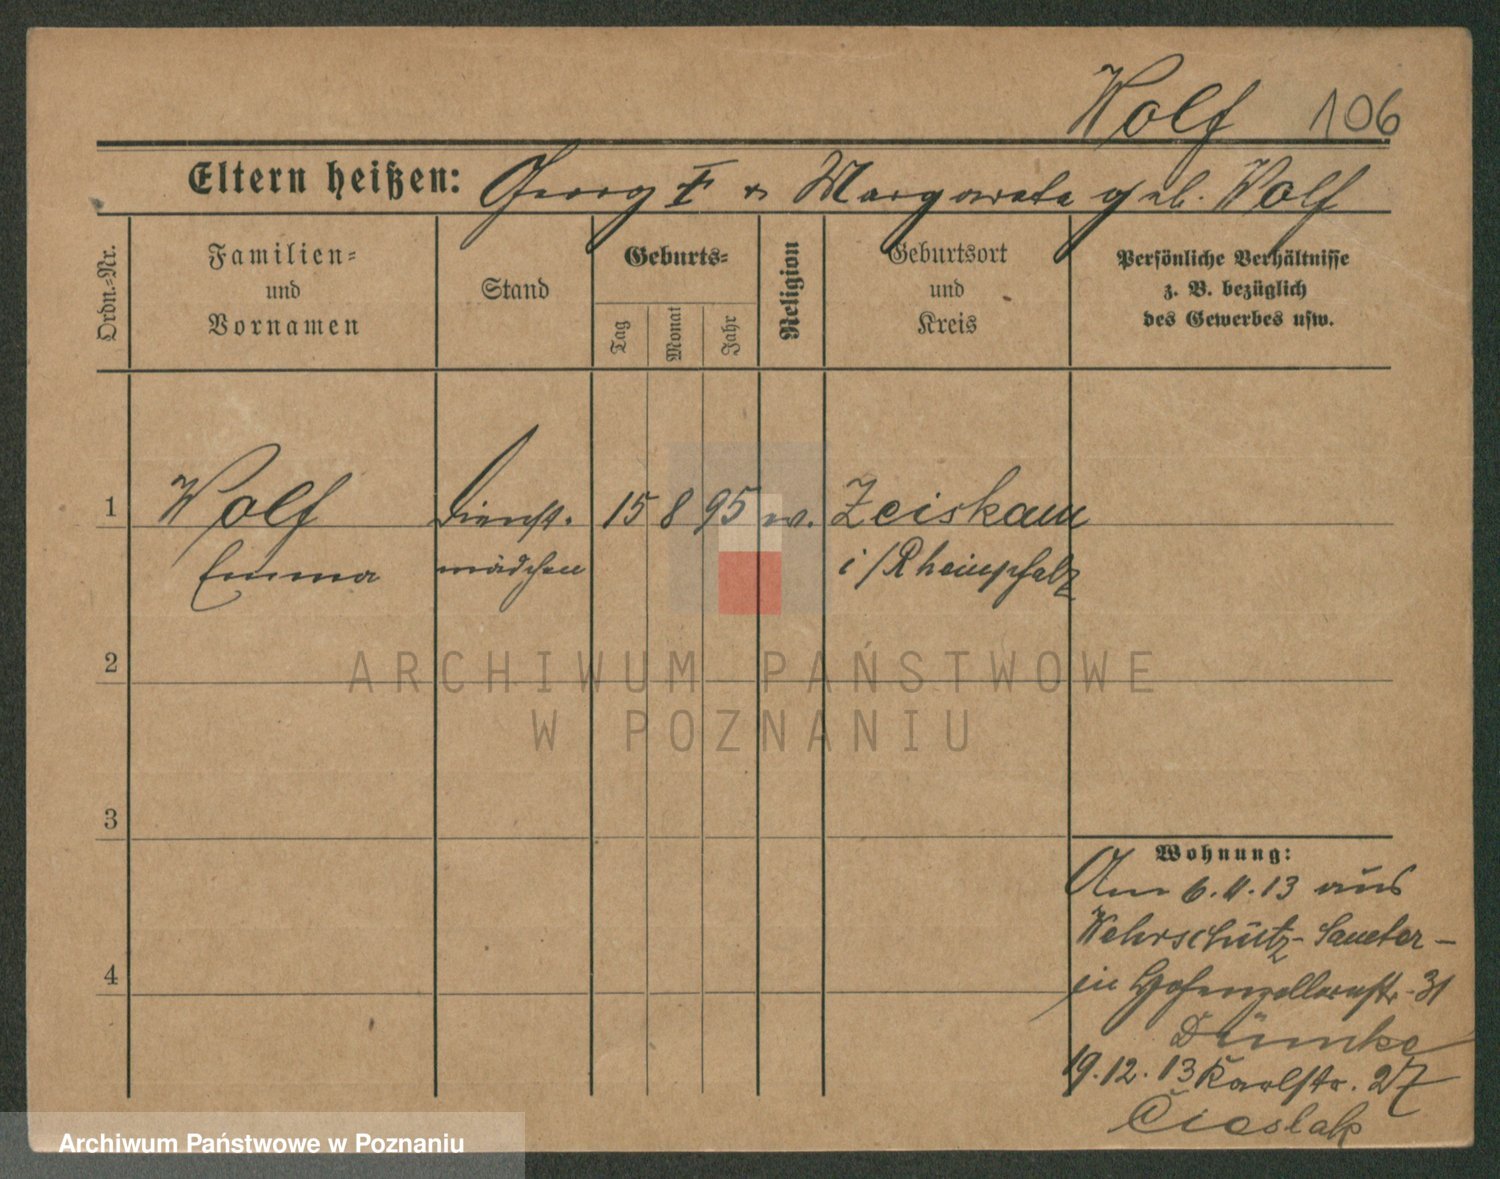 Wolf 106
Eltern heißen: Georg I u Margareta geb. Wolf
Ordn.-Nr.
Familien-
und
Vornamen
Stand
Geburts-
Tag
Monat
Jahr
Religion
Geburtsort
und
Kreis
Persönliche Verhältnisse
z. B. bezüglich
des Gewerbes usw.
1 Wolf Dienst- 15 8 95 ev. Zeiskam
Emma mädchen i/Rheinpfalz
2
ARCHIWUM PAŃSTWOWE
W POZNANIU
3
Wohnung:
Am 6.11.13 aus
in Hohenzollernstr. 31
4
Dümke
19.12.13 Karlstr. 27
Cieslak
Archiwum Państwowe w Poznaniu